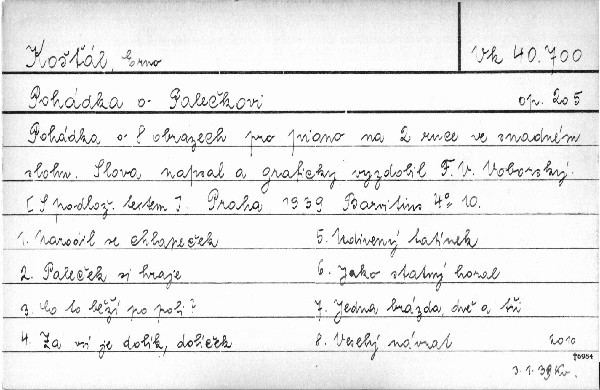 Košťál, Erno Vk 40.700
Pohádka o Palečkovi op. 205
Pohádka o 8 obrazech pro piano na 2 ruce ve snadném
slohu. Slova napsal a graficky vyzdobil F. V. Voborský.
[S podlož. textem]. Praha 1939 Barvitius 4° 10.
1. Narodil se chlapeček 5. Udivený tatínek
2. Paleček si hraje 6. Jako statný horal
3. Co to běží po poli? 7. Jedna brázda, dvě a tři
4. Za vsí je dolík, dolíček 8. Veselý návrat
3. 1. 39 Kv.